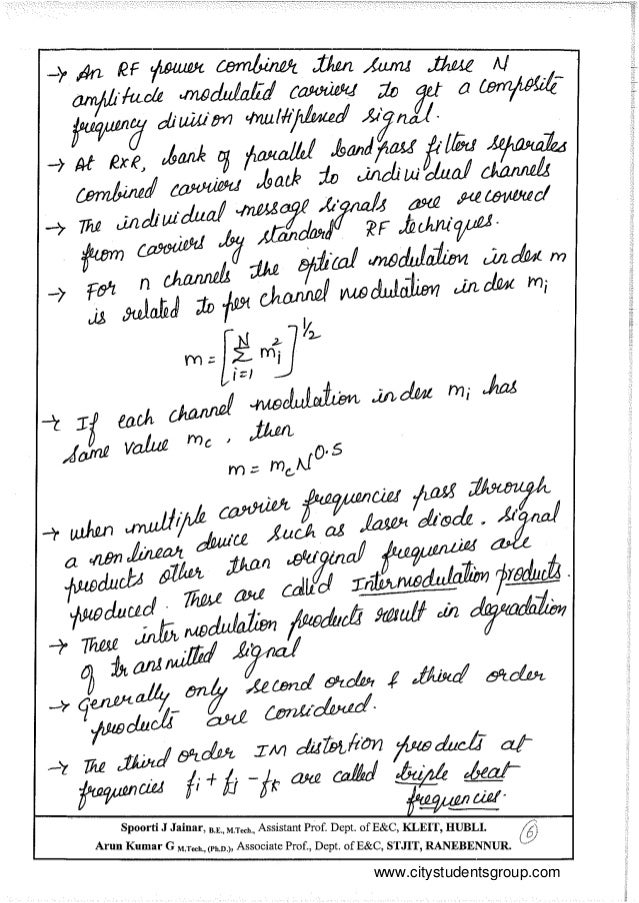 → An RF power combiner then sums these N
amplitude modulated carriers to get a composite
frequency division multiplexed signal.
→ At RXR, bank of parallel bandpass filters separates
combined carriers back to individual channels
→ The individual message signals are recovered
from carriers by standard RF techniques.
→ For n channels the optical modulation index m
is related to per channel modulation index mᵢ
m = [ N Σ i=1 mᵢ² ]^1/2
→ If each channel modulation index mᵢ has
same value mc , then
m = mc N^0.5
→ when multiple carrier frequencies pass through
a non linear device such as laser diode. signal
products other than original frequencies are
produced. These are called Intermodulation products.
→ These inter modulation products result in degradation
of transmitted signal
→ Generally only second order & third order
products are considered.
→ The third order IM distortion products at
frequencies fi + fj - fk are called triple beat
frequencies.
Spoorti J Jainar, B.E., M.Tech., Assistant Prof. Dept. of E&C, KLEIT, HUBLI.
Arun Kumar G M.Tech., (Ph.D.), Associate Prof., Dept. of E&C, STJIT, RANEBENNUR.
6
www.citystudentsgroup.com